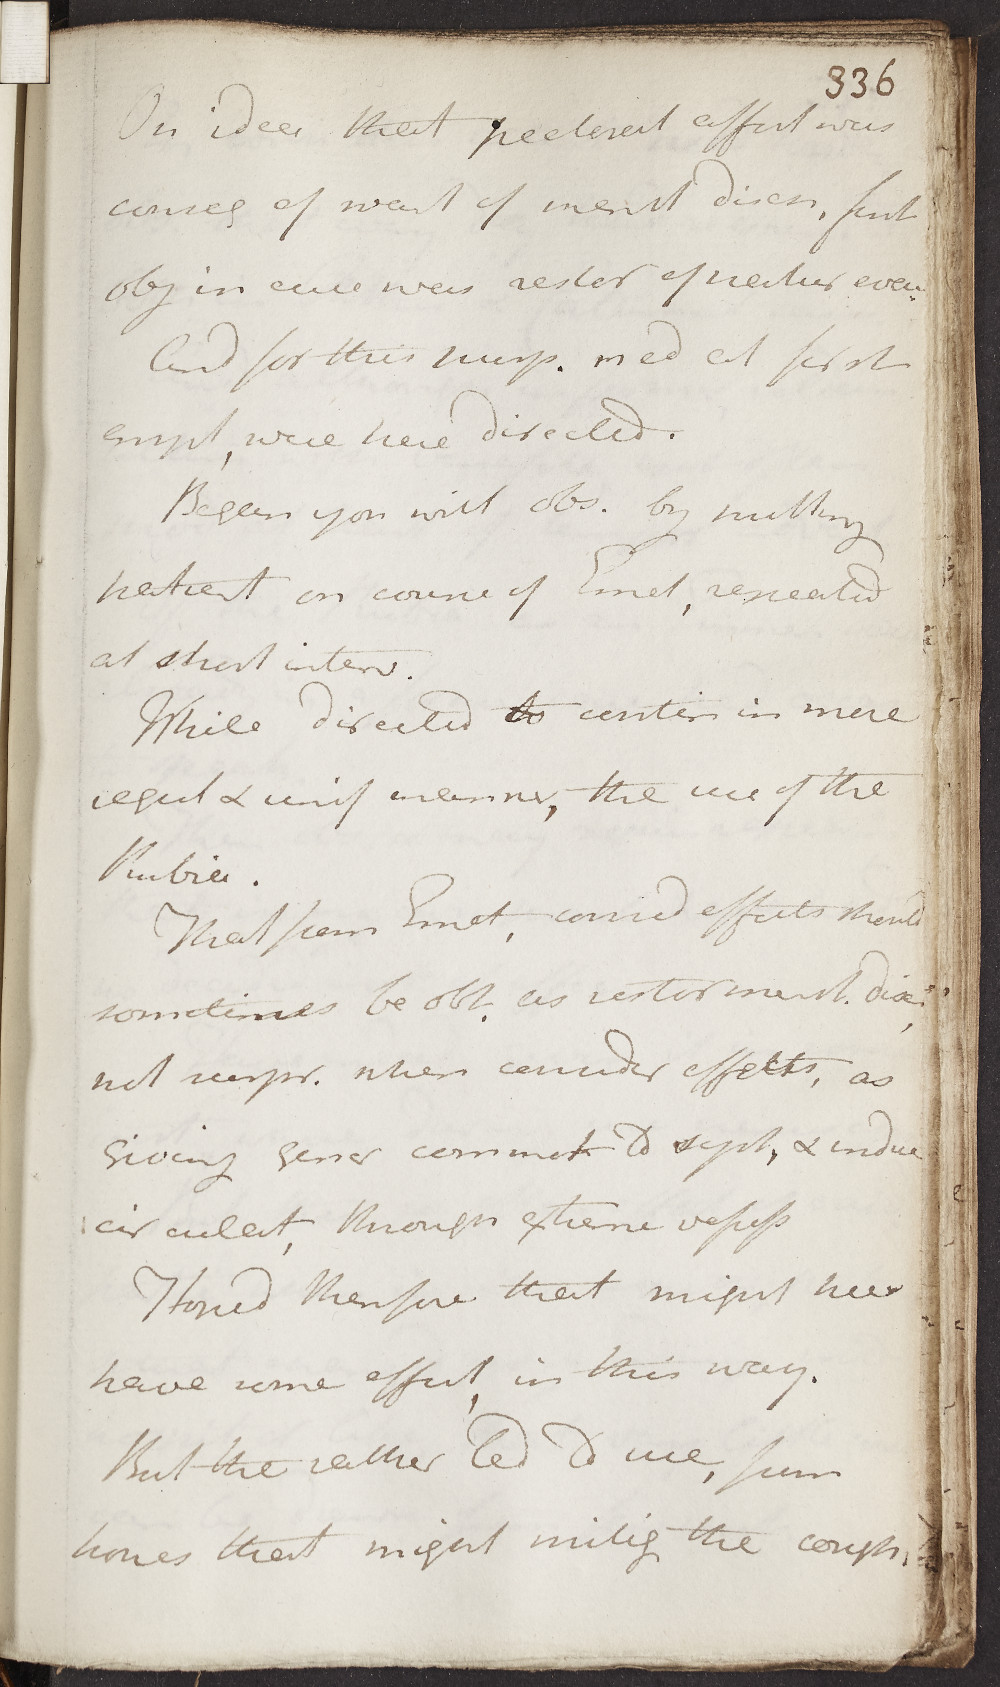 336
On idea that pectoral affect was
conseq of want of menst disch, first
obj in cure was restor of natur evac.
And for this purp. med at first
empl, were here directed.
Began you will obs. by putting
patient on course of Emet, repeated
at short interv.
While directed to contin in more
regul & unif manner, the use of the
Rubia.
That from Emet, consid effects should
sometimes be obt, as restor menst. disc,
not surpr. when consider effects, as
giving gener commot to syst, & indue
circulat, through extreme vessels
Hoped therefore that might here
have some effect, in this way.
But the rather led to use, from
hopes that might mitig the cough,